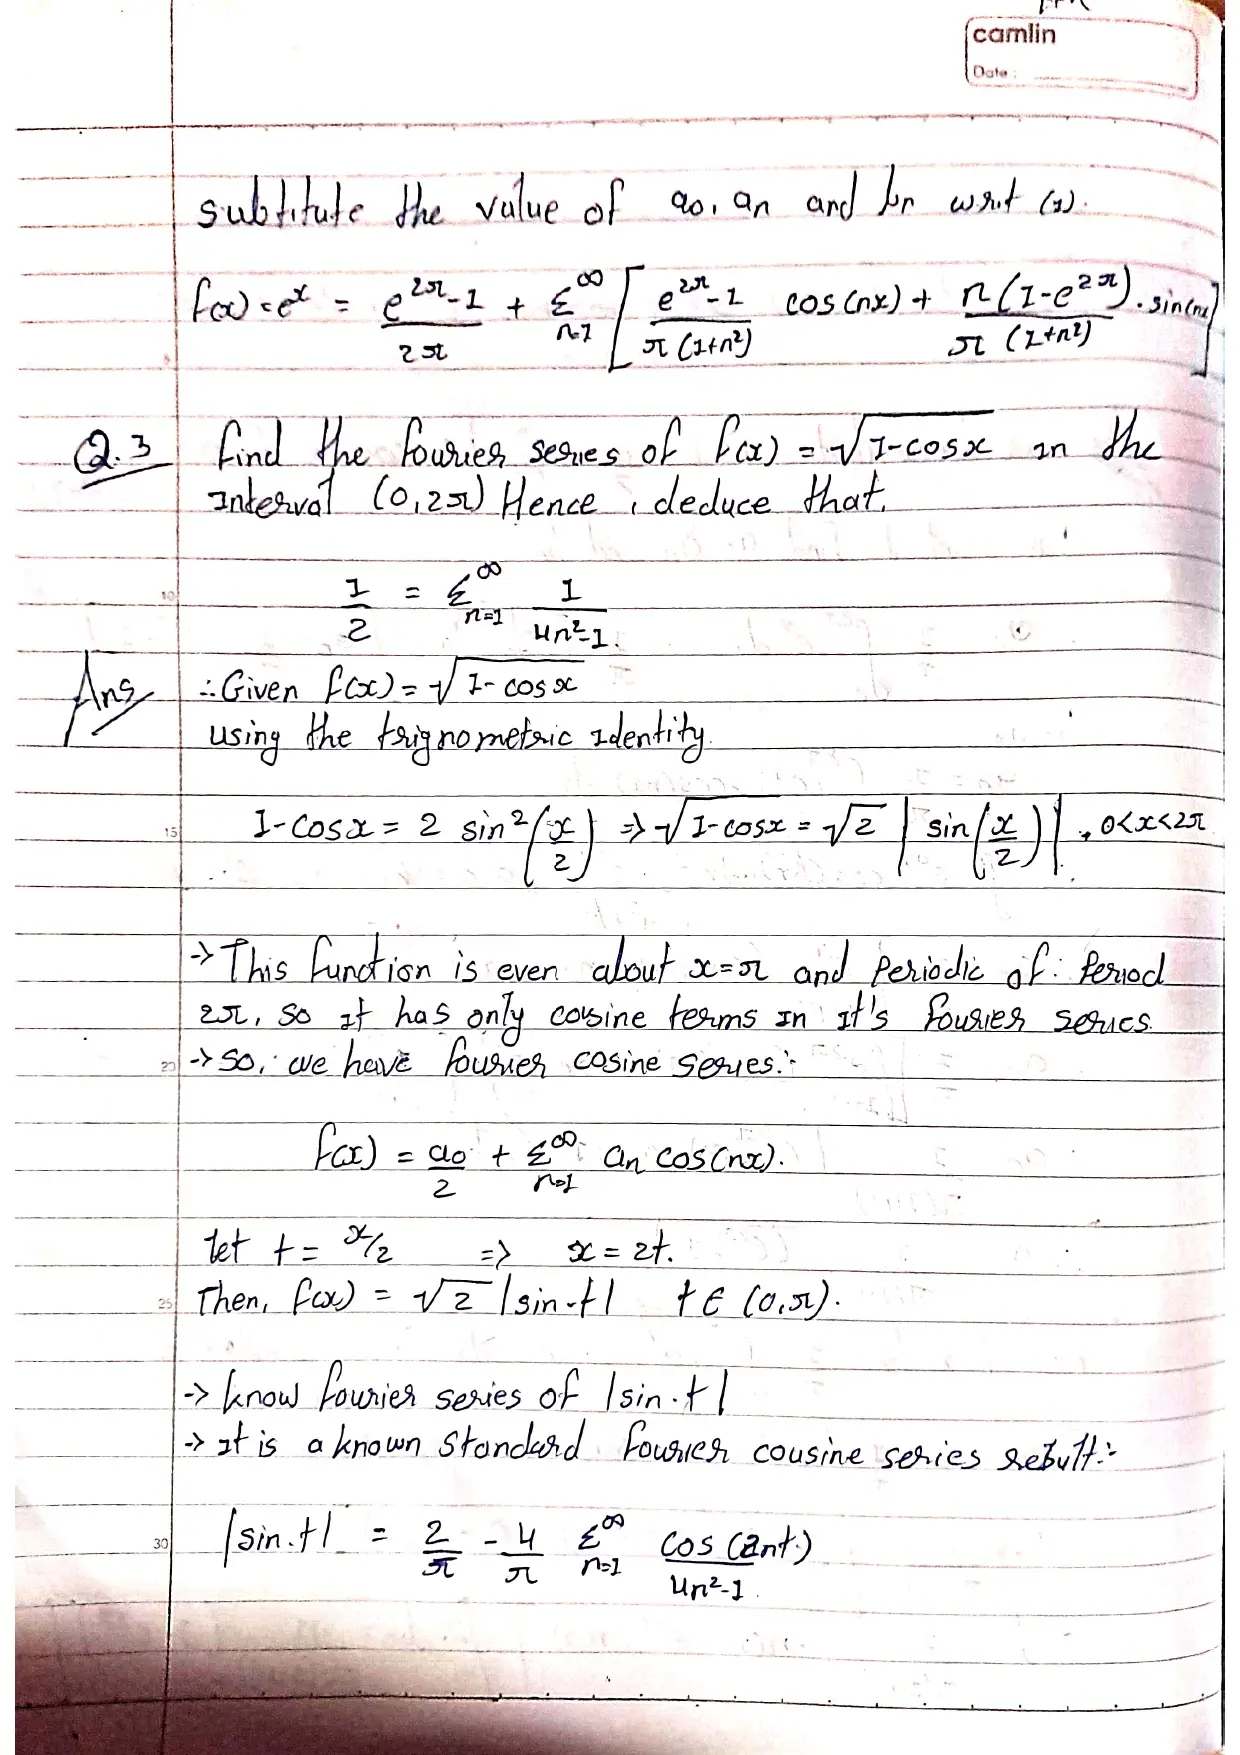 camlin
Date :
subtitute the value of a₀, aₙ and bₙ w.r.t (1).
f(x) = eˣ = (e^{2π} - 1)/(2π) + Σ_{n=1}^{∞} [ (e^{2π} - 1)/(π(1+n²)) cos(nx) + n(1-e^{2π})/(π(1+n²)) . sin(nx) ]
Q.3 find the fourier series of f(x) = √(1-cosx) in the
Interval (0, 2π) Hence, deduce that.
1/2 = Σ_{n=1}^{∞} 1/(4n²-1).
Ans ∴ Given f(x) = √(1-cosx)
using the trignometric identity.
1-cosx = 2 sin²(x/2) => √(1-cosx) = √2 |sin(x/2)|, 0<x<2π
-> This function is even about x=π and periodic of period
2π, so it has only cosine terms in it's fourier series.
-> so, we have fourier cosine series:-
f(x) = a₀/2 + Σ_{n=1}^{∞} aₙ cos(nx).
let t = x/2 => x = 2t.
Then, f(x) = √2 |sin.t| t ∈ (0, π).
-> know fourier series of |sin.t|
-> It is a known standard fourier cousine series result:-
|sin.t| = 2/π - 4/π Σ_{n=1}^{∞} cos(2nt)/(4n²-1).